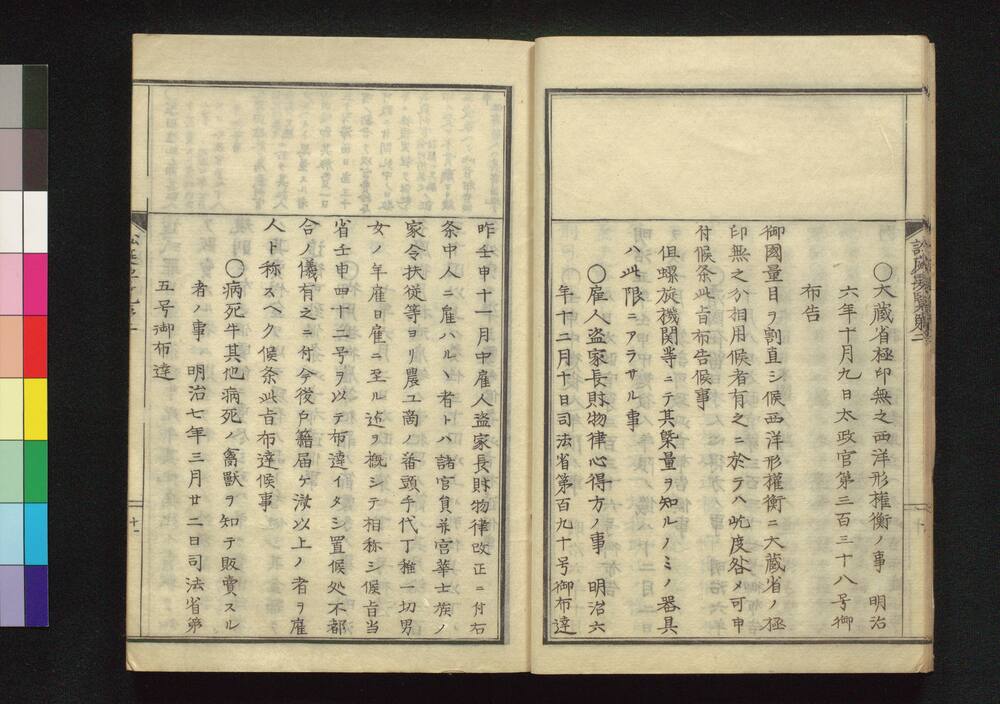 ○大蔵省極印無之西洋形権衡ノ事　明治
六年十月九日太政官第三百三十八号御
布告
御國量目ヲ割直シ候西洋形權衡ニ大蔵省ノ極
印無之分相用候者有之ニ於テハ屹度咎メ可申
付候条此旨布告候事
但螺旋機関等ニテ其槩量ヲ知ルノミノ器具
ハ此限ニアラサル事
○雇人盗家長財物律心得方ノ事　明治六
年十二月十日司法省第百九十号御布達
昨壬申十一月中雇人盗家長財物律改正ニ付右
条中人ニ雇ハルヽ者トハ諸官員并宮華士族ノ
家令扶従等ヨリ農工商ノ番頭手代丁稚一切男
女ノ年雇日雇ニ至ル迄ヲ概シテ相称シ候旨当
省壬申四十二号ヲ以テ布達イタシ置候処不都
合ノ儀有之ニ付今後戸籍届ケ済以上ノ者ヲ雇
人ト称スヘク候条此旨布達候事
○病死牛其他病死ノ禽獸ヲ知テ販賣スル
者ノ事　明治七年三月廿二日司法省第
五号御布達
十一